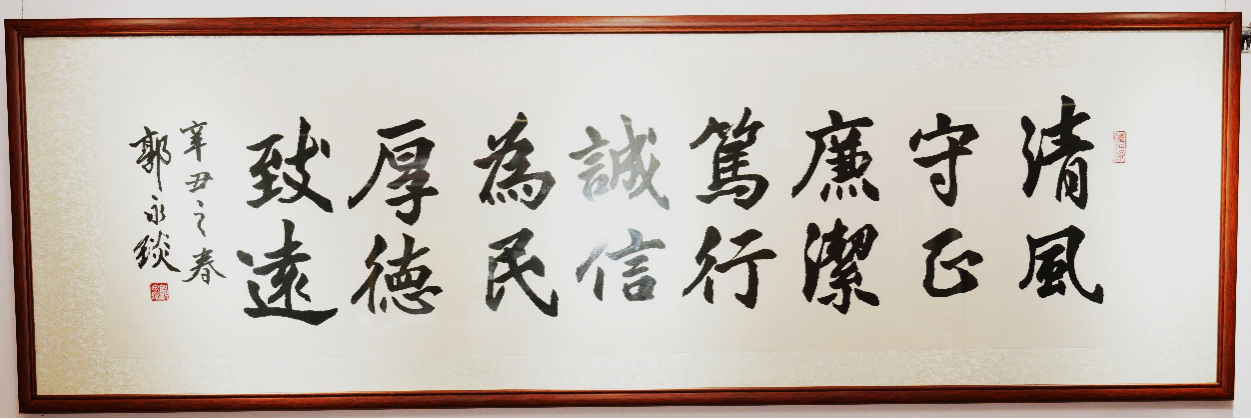 清風
守正
廉潔
篤行
誠信
為民
厚德
致遠
辛丑之春
郭永琰